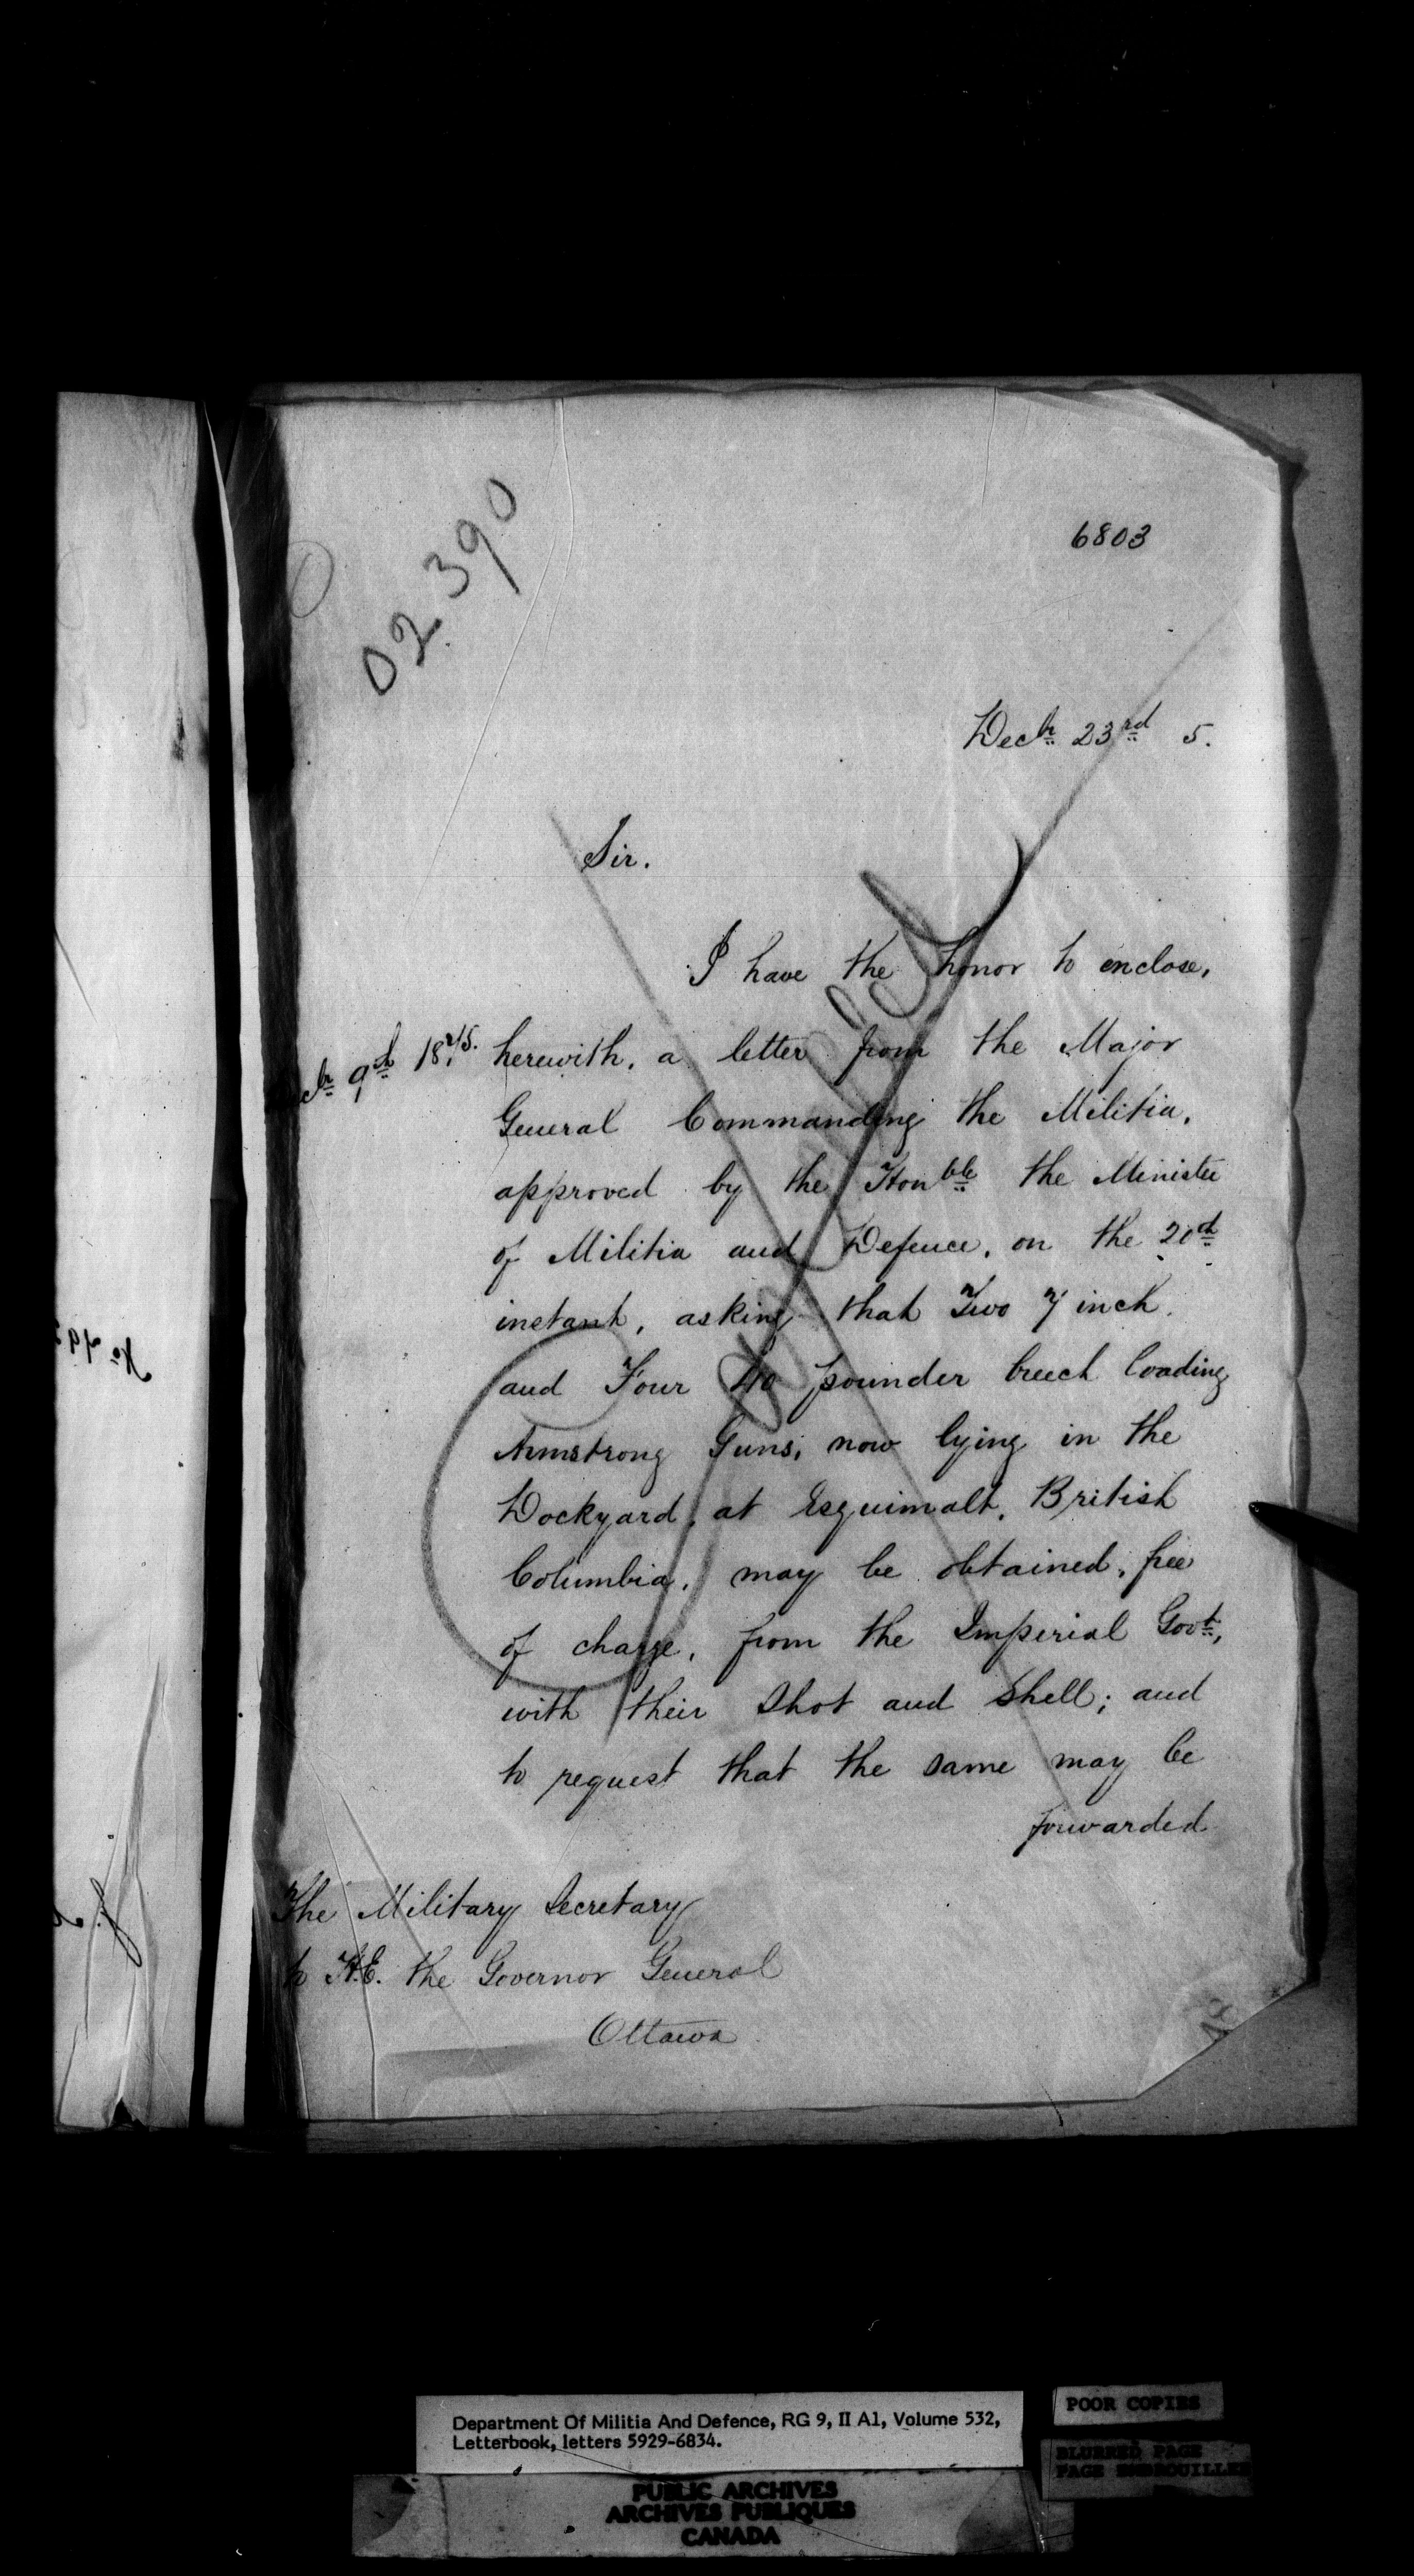 02390
6803
Decr 23rd 5.
Sir.
I have the honor to enclose,
9th 1875.
herewith, a letter from the Major
General Commanding the Militia,
approved by the Honble the Minister
of Militia and Defence, on the 20th
instant, asking that Two 7 inch
and Four 40 pounder breech loading
Armstrong Guns, now lying in the
Dockyard, at Esquimalt, British
Columbia, may be obtained, free
of charge, from the Imperial Govt,
with their Shot and Shell; and
to request that the same may be
forwarded
The Military Secretary
to H.E. the Governor General
Ottawa
Department Of Militia And Defence, RG 9, II A1, Volume 532,
Letterbook, letters 5929-6834.
POOR COPIES
BLURRED PAGE
PAGE EMBROUILLEE
PUBLIC ARCHIVES
ARCHIVES PUBLIQUES
CANADA